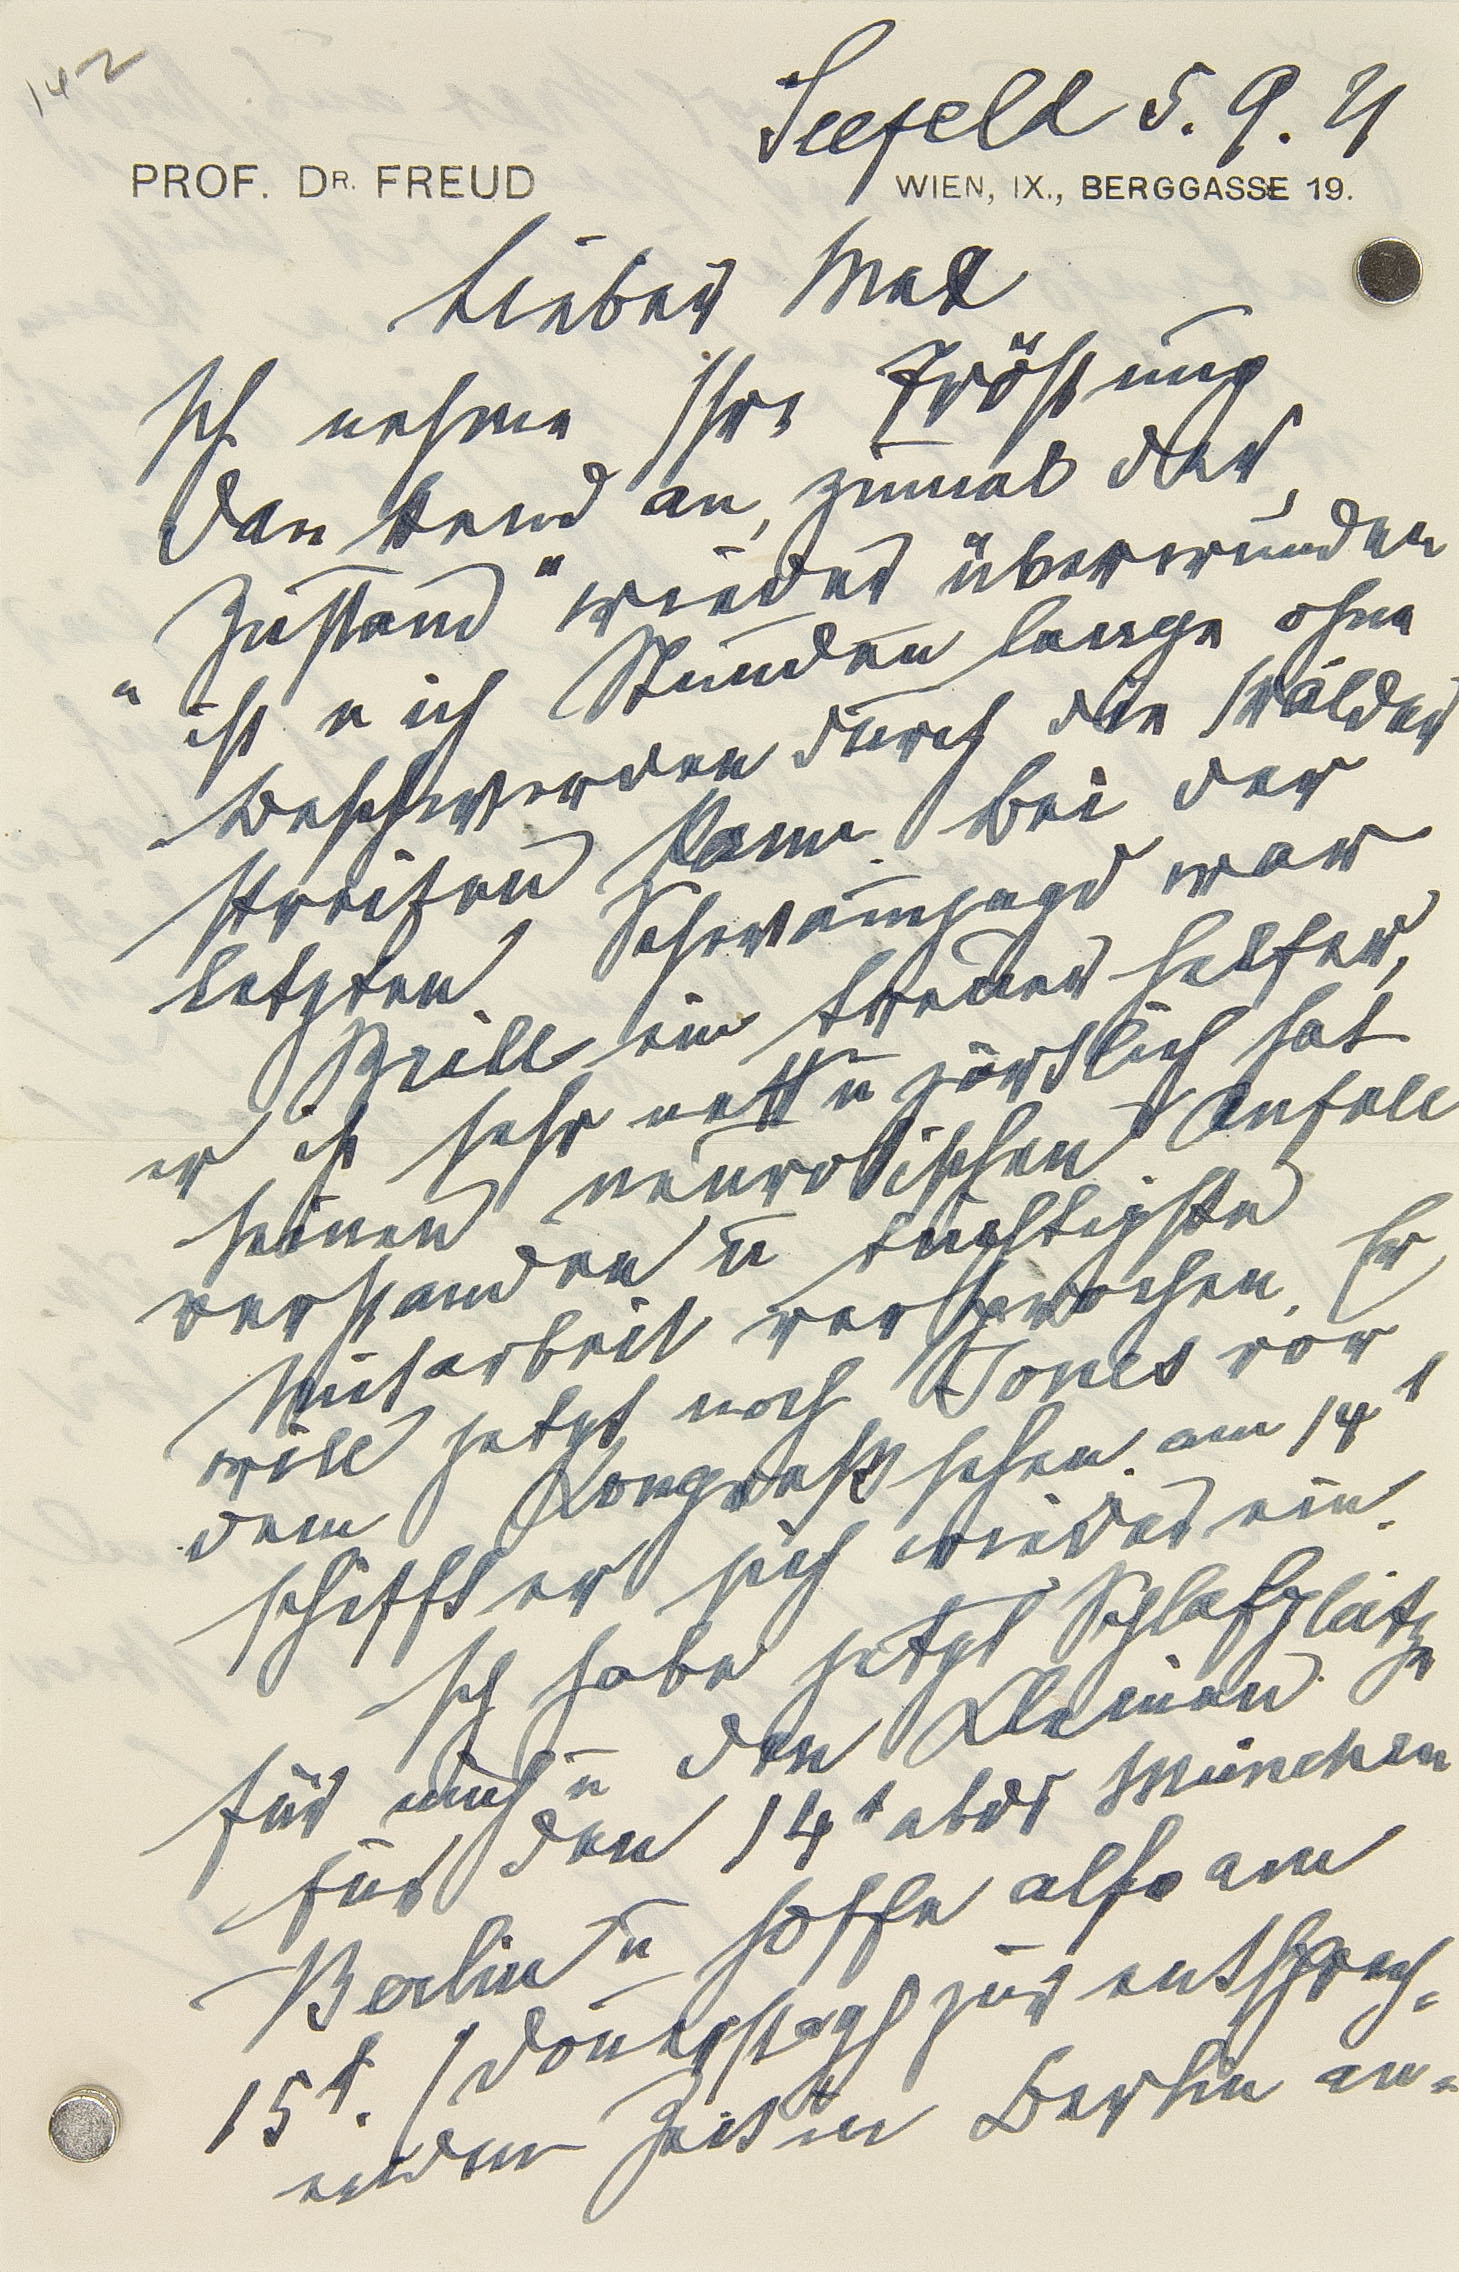 142
Seefeld 5. 9. 21
PROF. DR. FREUD
WIEN, IX., BERGGASSE 19.
Lieber Max
Ich nehme Ihre Tröstung
dankend an, zumal der
„Zustand" wieder überwunden
ist u ich Stunden lange ohne
Beschwerden durch die Wälder
streifen kann. Bei der
letzten Schwämjagd war
Brill ein treuer Helfer,
er ist sehr nett u zärtlich hat
seinen neurotischen Anfall
verstanden u tüchtigste
Mitarbeit versprochen. Er
will jetzt noch Jones vor
dem Kongreß sehen. am 14t
schifft er sich wieder ein.
Ich habe jetzt Schlafplätze
für mich u den Kleinen
für den 14t abds München
Berlin u hoffe also am
15t. (Donnerstag) zur entsprech-
enden Zeit in Berlin an-